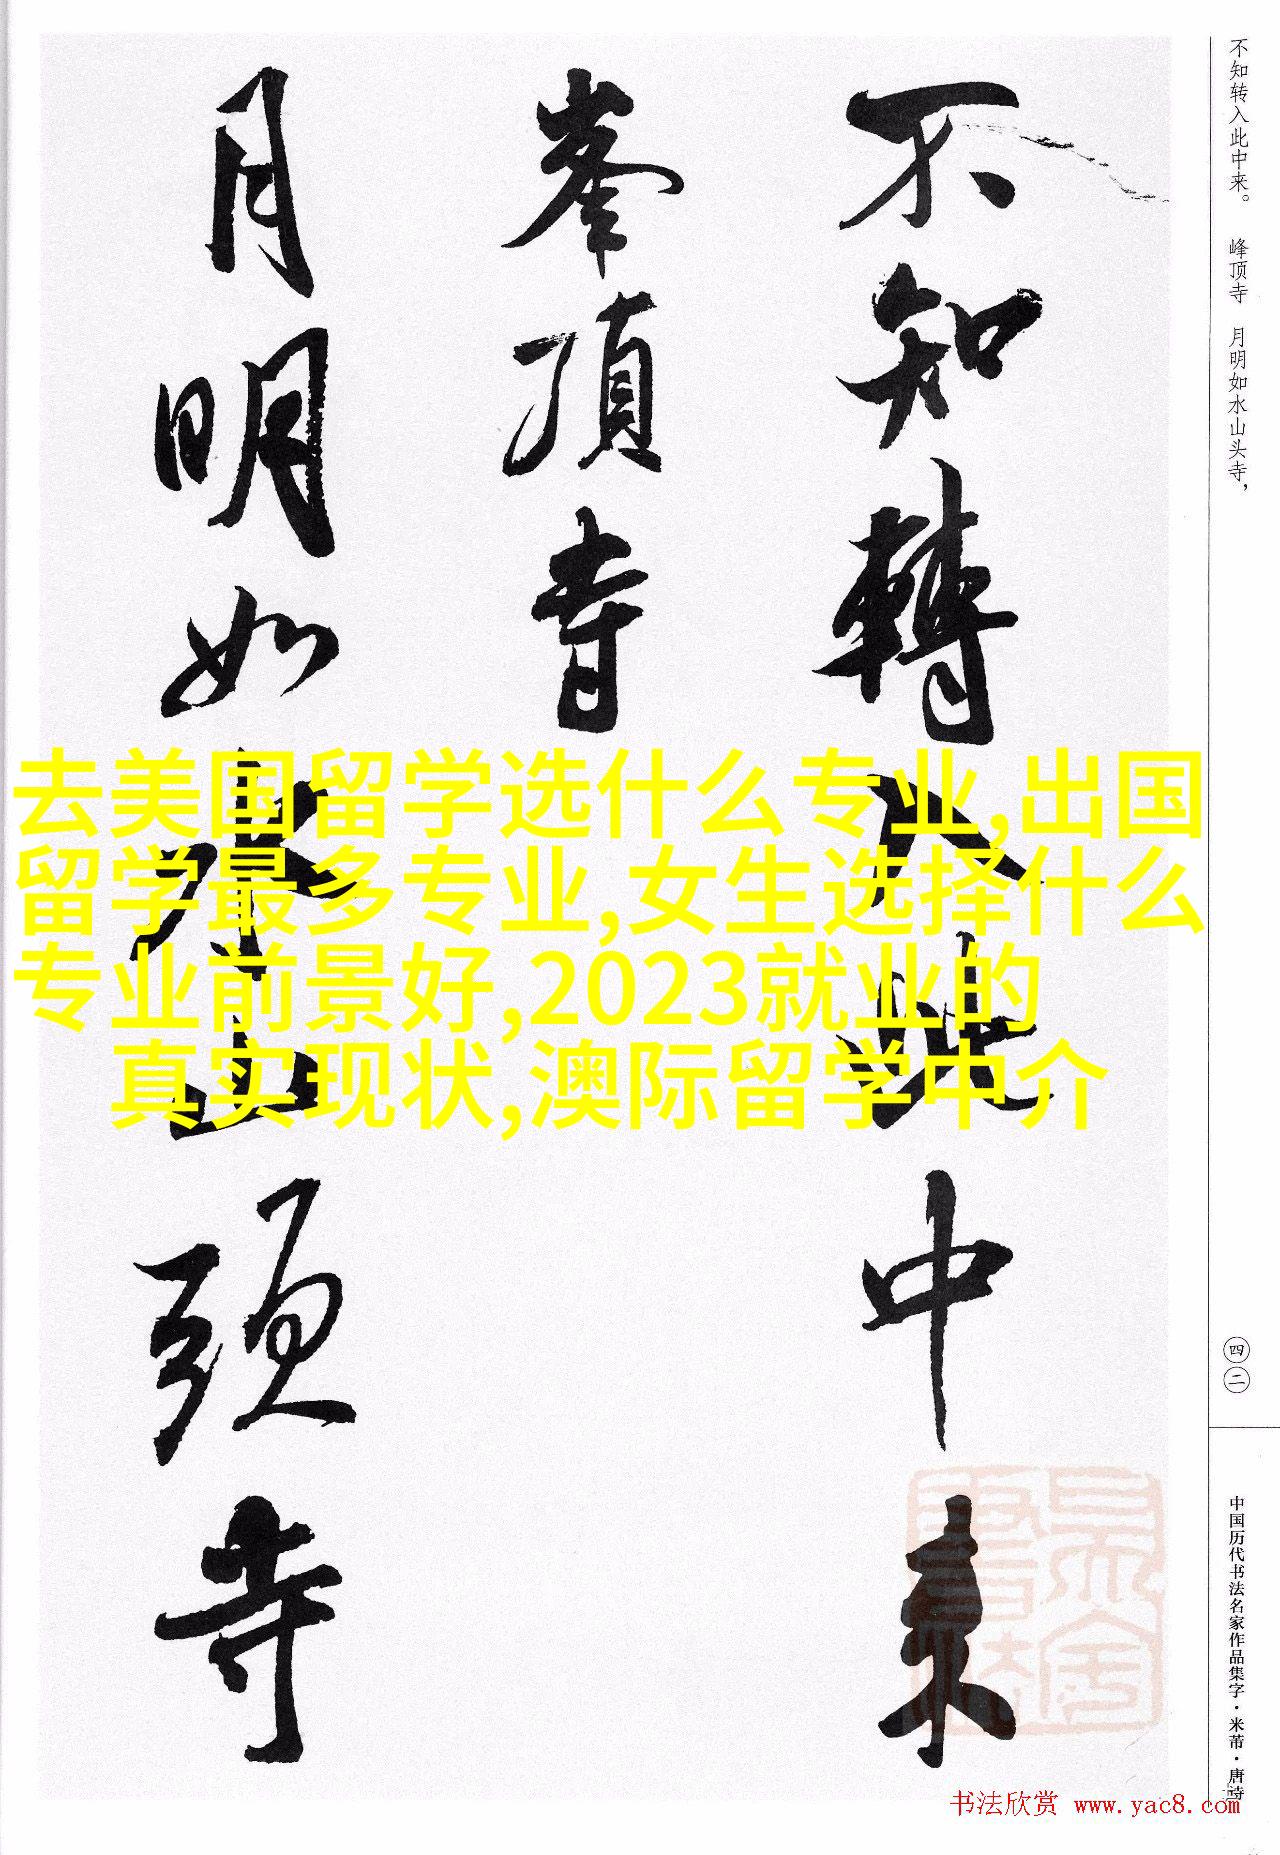 不知转入此中来。 峰顶寺 月明如水山头寺，
不知轉入此中来
峯頂寺
月明如水山頭寺
去美国留学选什么专业,出国
留学最多专业,女生选择什么
专业前景好,2023就业的
真实现状,澳际留学中介
四二
中国历代书法名家作品集字·米芾·唐诗
书法欣赏 www.yac8.com